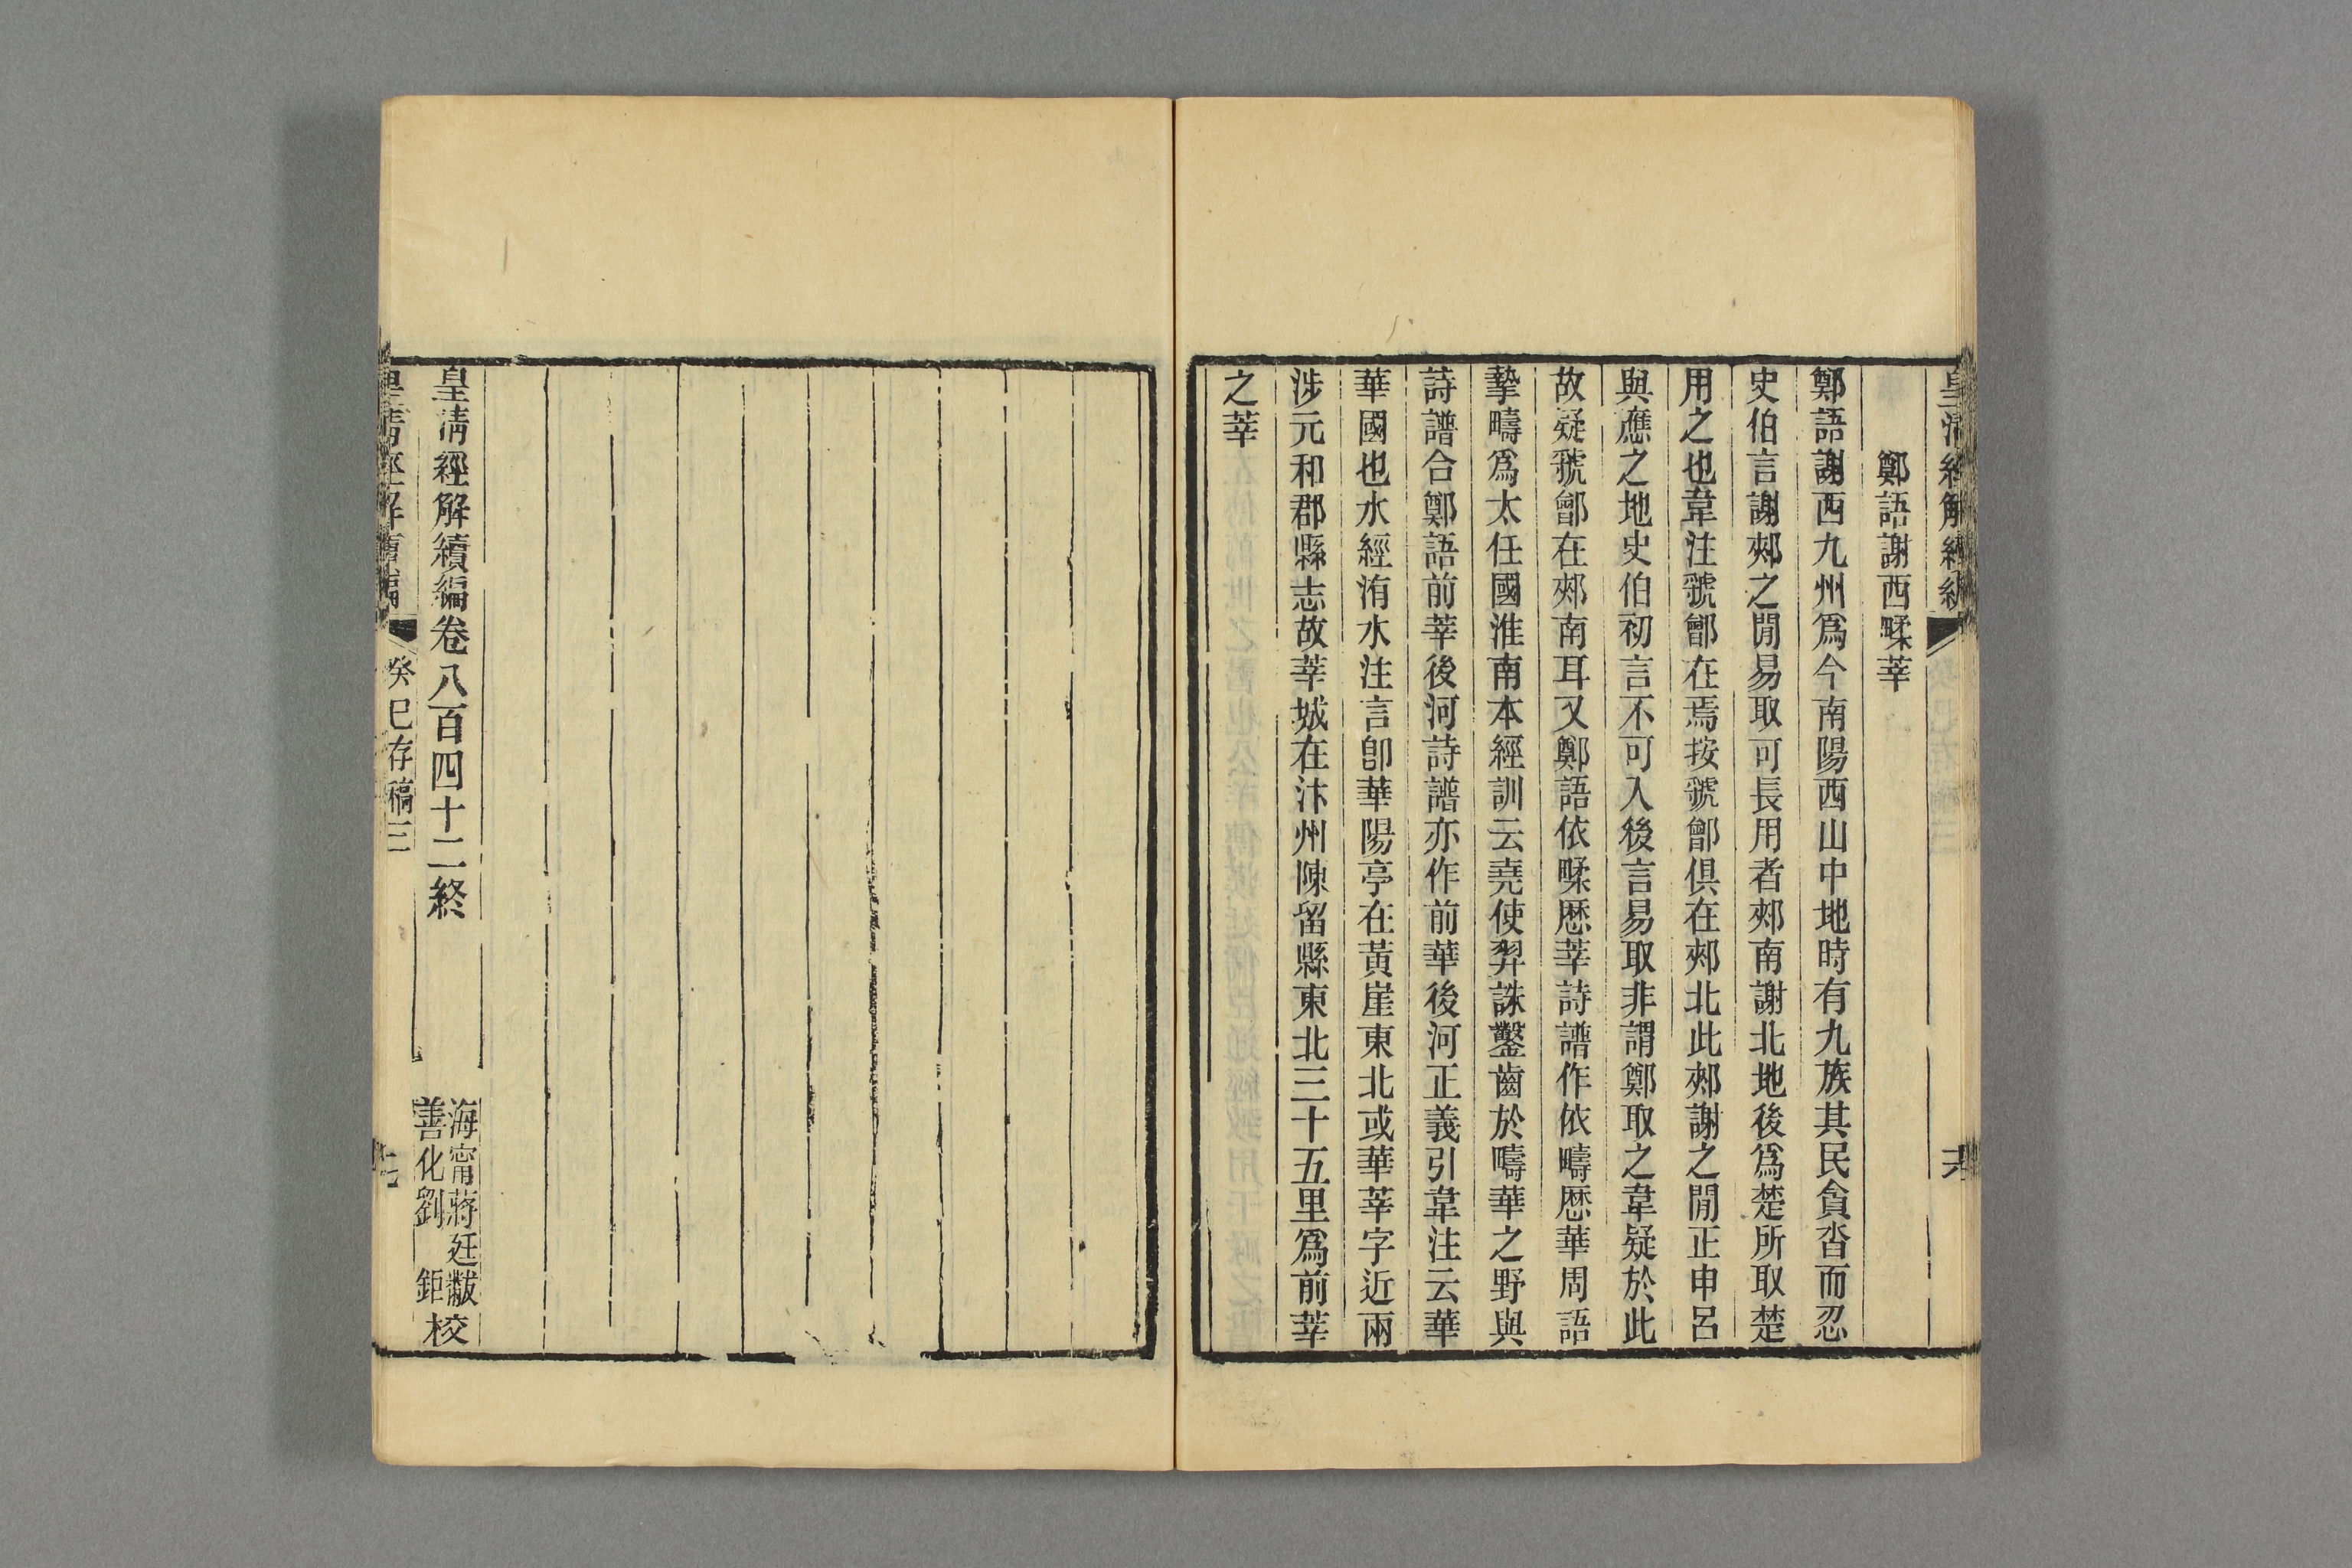 鄭語謝西㽥莘
鄭語謝西九州爲今南陽西山中地時有九族其民貪沓而忍
史伯言謝郟之閒易取可長用者郟南謝北地後爲楚所取楚
用之也韋注虢鄶在焉按虢鄶俱在郟北此郟謝之閒正申呂
與應之地史伯初言不可入後言易取非謂鄭取之韋疑於此
故疑虢鄶在郟南耳又鄭語依㽥厯莘詩譜作依疇厯華周語
摯疇爲太任國淮南本經訓云堯使羿誅鑿齒於疇華之野與
詩譜合鄭語前莘後河詩譜亦作前華後河正義引韋注云華
華國也水經洧水注言卽華陽亭在黃崖東北或華莘字近兩
涉元和郡縣志故莘城在汴州陳留縣東北三十五里爲前莘
之莘
皇淸經解續編卷八百四十二終
海甯蔣廷黻
善化劉　鉅
校
皇淸經解續編
癸巳存稿三